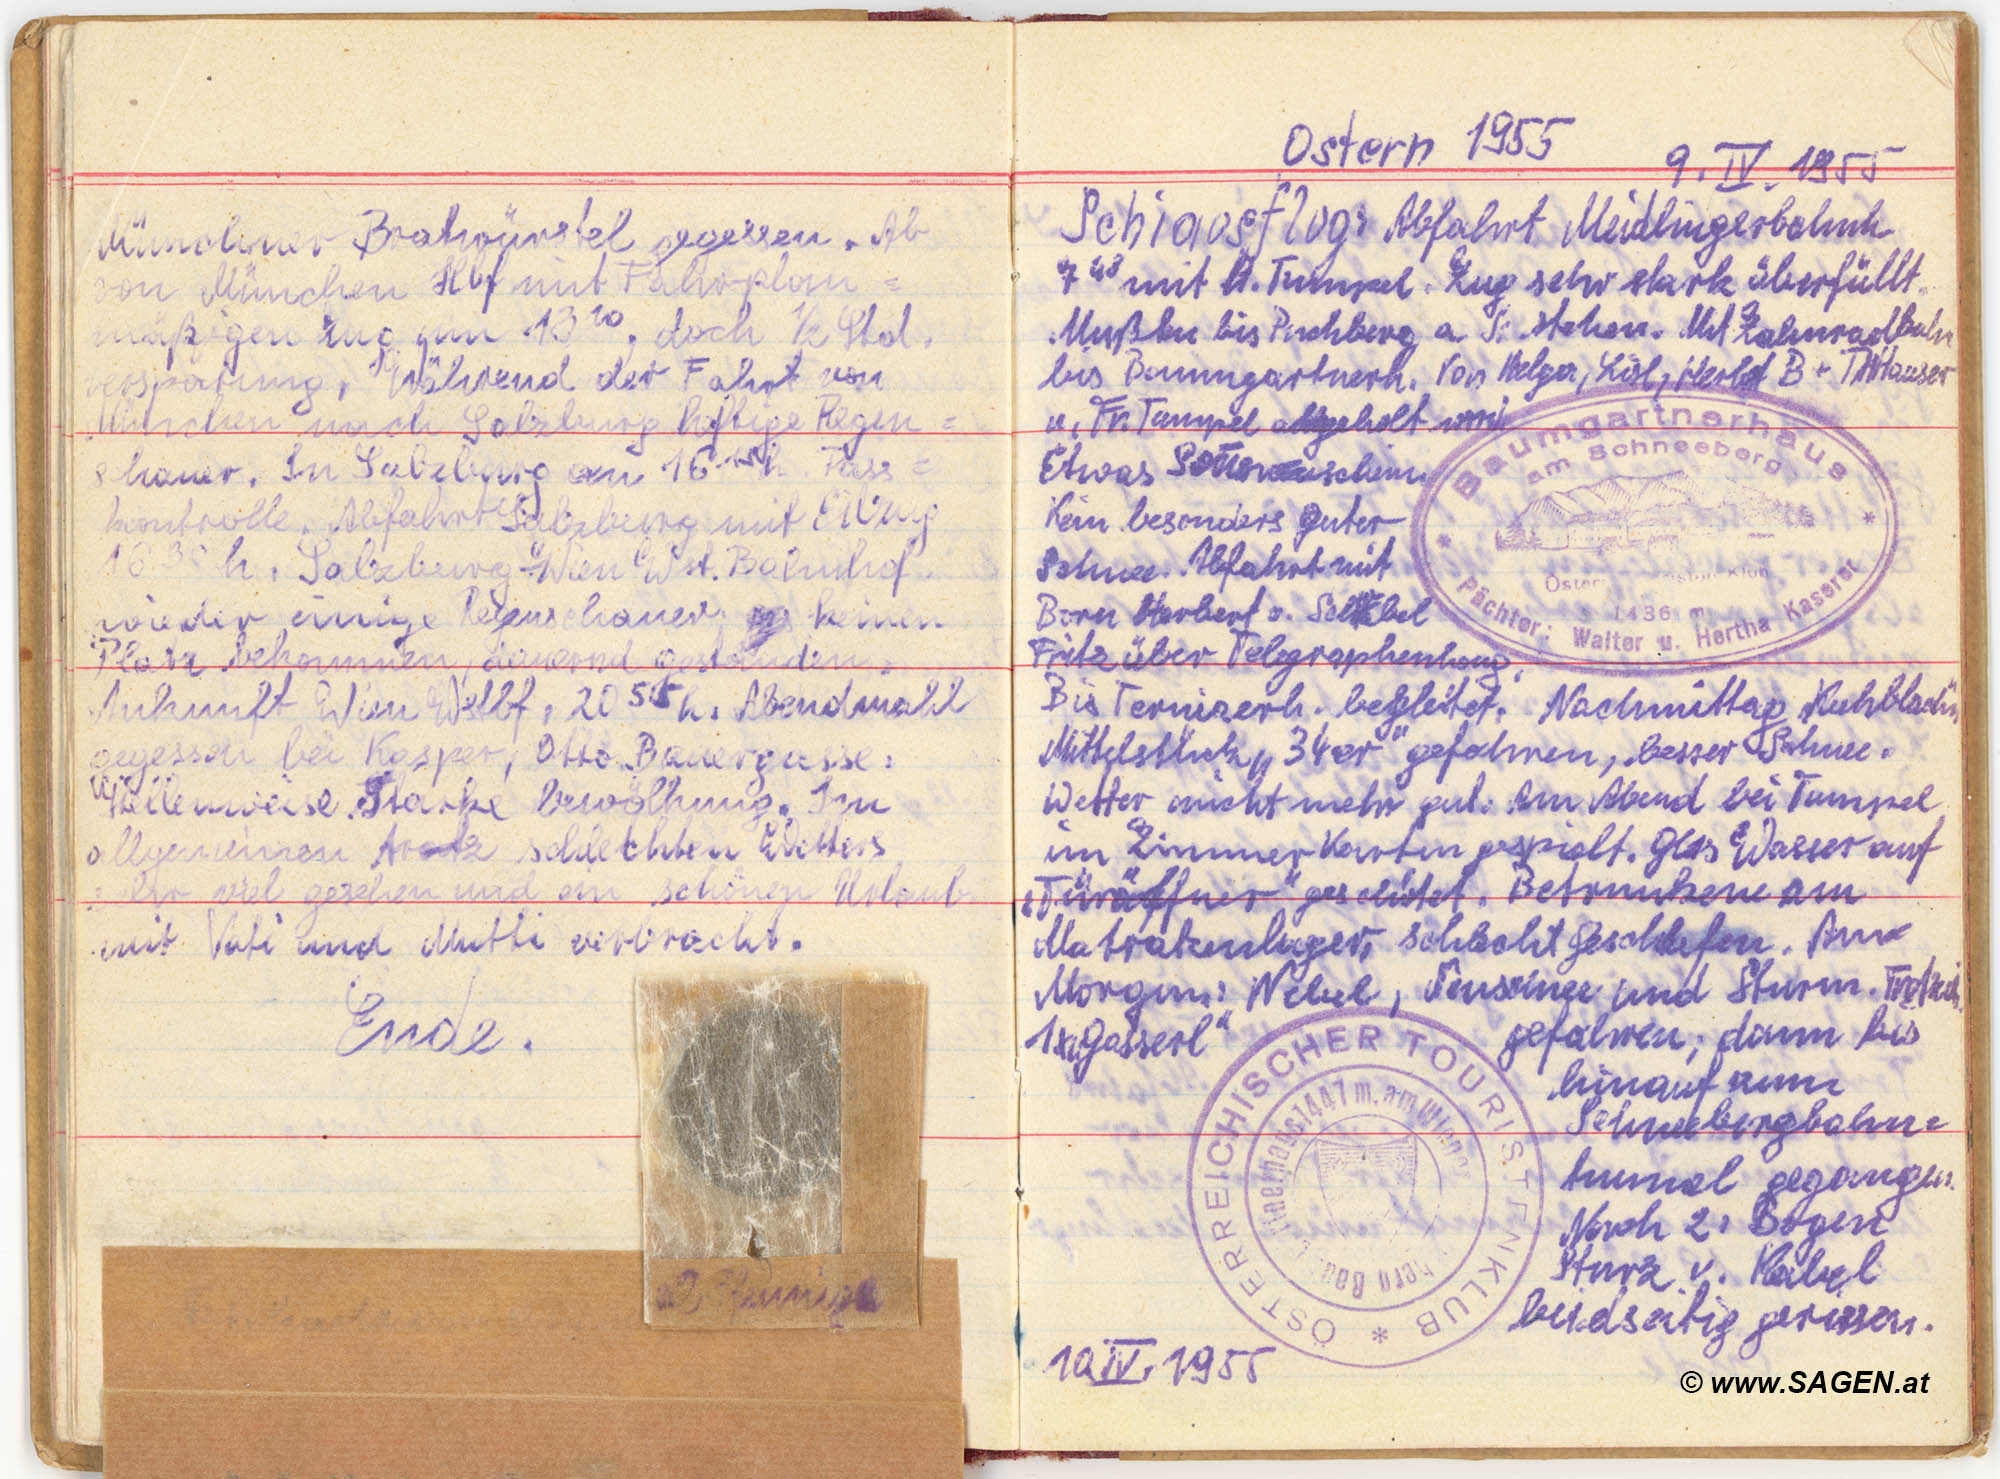 Münchner Bratwürstel gegessen. Ab
von München Hbf mit Fahrplan=
mäßigen Zug um 13 20, doch ½ Std.
verspätung. Während der Fahrt von
München nach Salzburg heftige Regen=
schauer. In Salzburg an 16 h. Pass=
kontrolle. Abfahrt Salzburg mit Eilzug
16 30 h. Salzburg-Wien Wst. Bahnhof
wieder einige Regenschauer, keinen
Platz bekommen, dauernd gestanden.
Ankunft Wien Westbf. 20 55 h. Abendmahl
gegessen bei Kasper, Otto Bauergasse.
Stellenweise Starke bewölkung. Im
allgemeinen trotz schlechten Wetters
sehr viel gesehen und ein schönen Urlaub
mit Vati und Mutti verbracht.
Ende.
2 Pfennige
Ostern 1955
9. IV. 1955
Schiausflug: Abfahrt Meidlingerbahnh
7 48 mit H. Tumpel. Zug sehr stark überfüllt.
Mußten bis Puchberg a. S. stehen. Mit Zahnradbahn
bis Baumgartnerh. Von Helga, Lisl, Herbert B + Hauser
u. Fr. Tumpel abgeholt
Etwas Sonnenschein.
Kein besonders guter
Schnee. Abfahrt mit
Born Herbert u.
Fritz über Telegraphenhang,
Bis Ternitzerh. begleitet. Nachmittag
Mittelstück „34er" gefahren, besser Schnee.
Wetter nicht mehr gut. Am Abend bei Tumpel
im Zimmer Karten gespielt. Glas Wasser auf
„Türöffner" geschüttet. Betrunkene am
Matratzenlager, schlecht geschlafen. Am
Morgen: Nebel, Neuschnee und Sturm. Trotzd.
1x „Gasserl" gefahren, dann bis
hinauf zum
Schneebergbahn=
tunnel gegangen.
Nach 2. Bogen
Sturz u. Kabel
beidseitig gerissen.
10 IV. 1955
Baumgartnerhaus
am Schneeberg
1436 m
Pächter: Walter u. Hertha Kaserer
ÖSTERREICHISCHER TOURISTENKLUB
© www.SAGEN.at